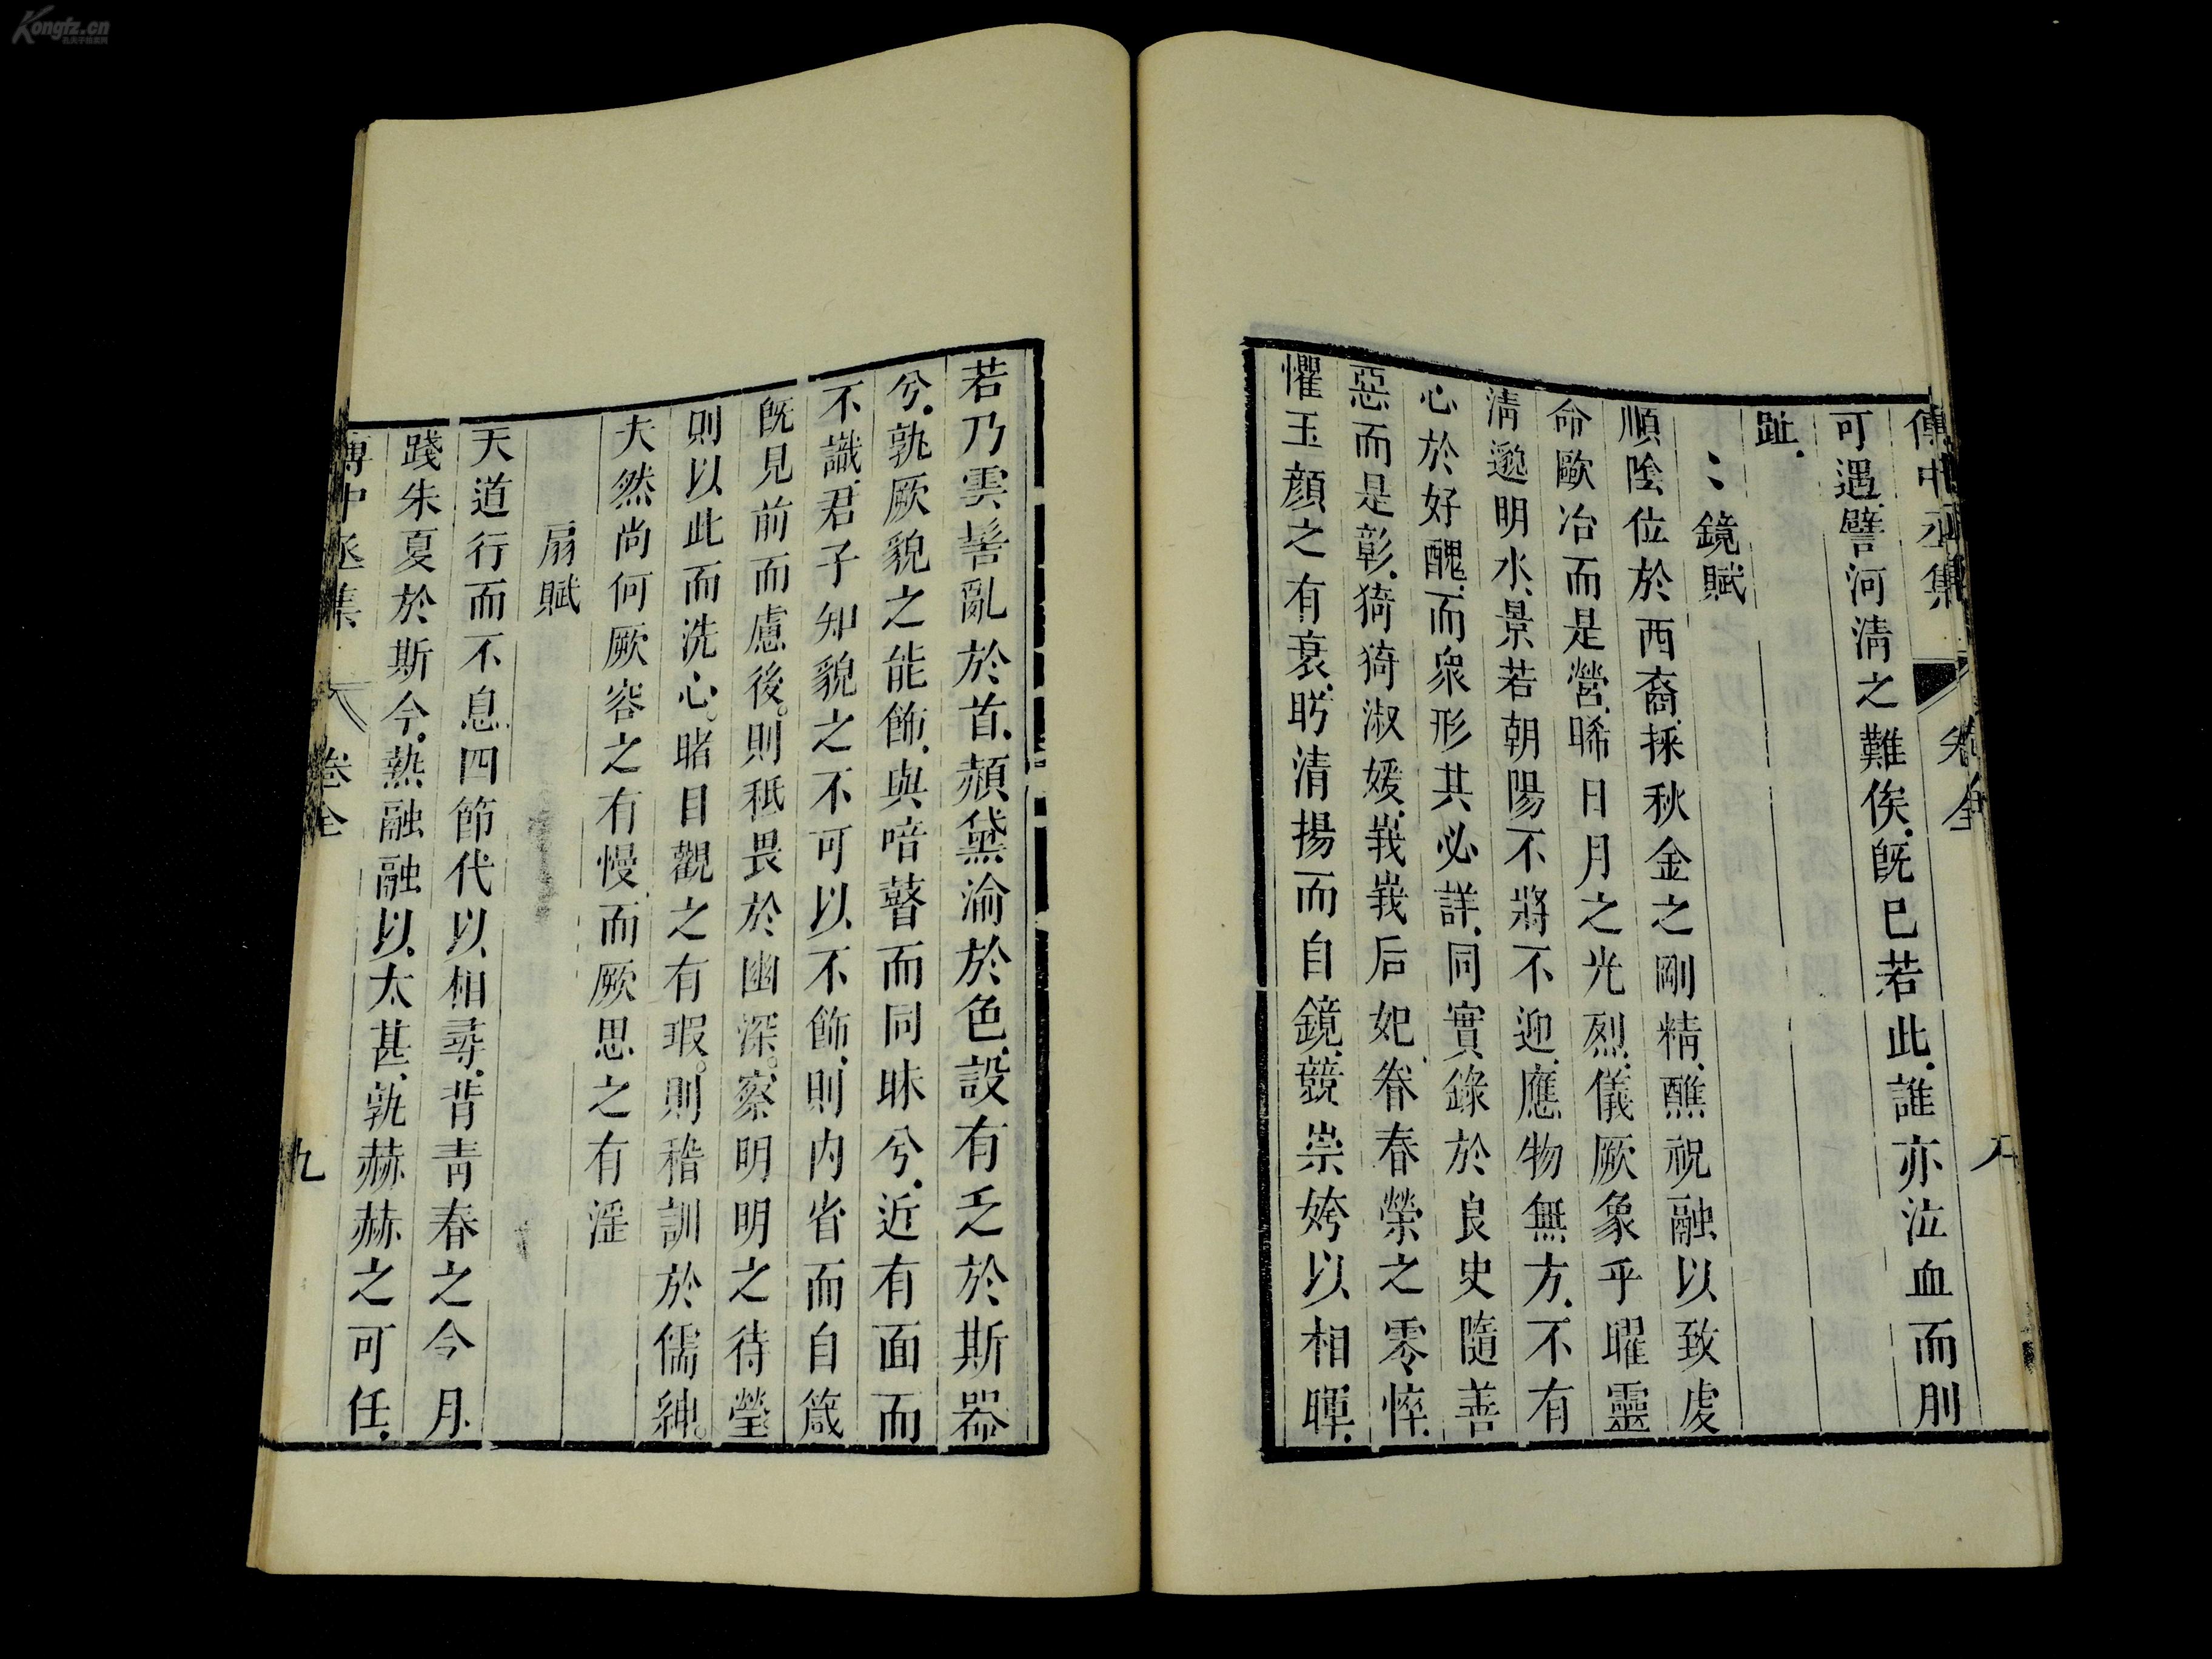 Kongfz.cn
孔夫子旧书网
傅中丞集 卷全 八
可遇譬河清之難俟既已若此誰亦泣血而刖
趾
鏡賦
順陰位於西裔採秋金之剛精醮祝融以致虔
命歐冶而是營晞日月之光烈儀厥象乎曜靈
清邈明水景若朝陽不將不迎應物無方不有
心於好醜而衆形其必詳同實錄於良史隨善
惡而是彰猗猗淑媛峩峩后妃眷春榮之零悴
懼玉顏之有衰眄清揚而自鏡競崇姱以相暉
若乃雲髻亂於首頳黛渝於色設有乏於斯器
兮孰厥貌之能飾與喑瞽而同昧兮近有面而
不識君子知貌之不可以不飾則内省而自箴
既見前而慮後則秪畏於幽深察明明之待瑩
則以此而洗心睹目觀之有瑕則稽訓於儒紳
夫然尚何厥容之有慢而厥思之有淫
扇賦
天道行而不息四節代以相尋背青春之今月
踐朱夏於斯今熱融融以太甚孰赫赫之可任
傅中丞集 卷全 九